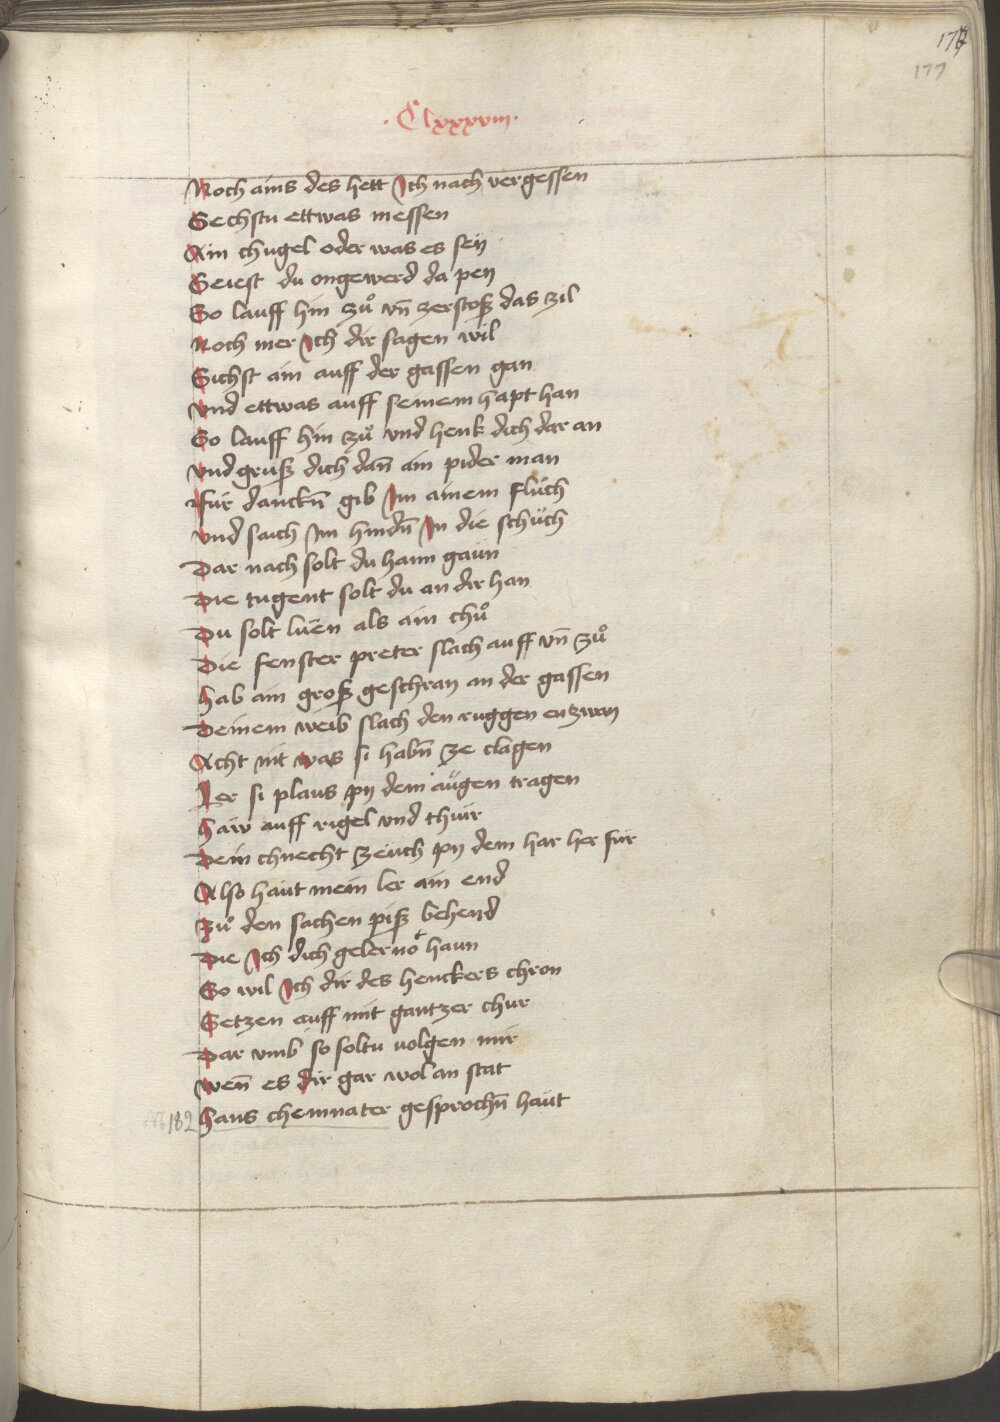 177
177
· Clxxxviii ·
Noch ains des hett Ich nach vergessen
Sechstu ettwas messen
Ain chugel oder was es seÿ
Seiest du ongewerd da peÿ
So lauff hin zuͦ vn̄ zerstoß das zil
Noch mer Ich dir sagen wil
Sichst ain auff der gassen gan
Vnd ettwas auff seinem hapt han
So lauff hin zuͦ vnd henk dich dar an
Vnd gruß dich dan̄ ain pider man
Für danckn̄ gib Im ainem flüch
Vnd saich Im hindn̄ In die schüch
Dar nach solt du haim gaün
Die tugent solt du an dir han
Du solt lüen als ain chuͦ
Die fenster preter slach auff vn̄ zuͦ
Hab ain groß geschraÿ an der gassen
Deinem weib slach den ruggen enzwaÿ
Acht nit was si habn̄ ze clagen
Ler si plaus pÿ dem aügen tragen
Haw auff rigel vnd thuir
Dein chnecht zeüch pÿ dem har her für
Also haüt mein ler ain end
Zuͦ den sachen piß behend
Die Ich dich gelernot haun
So wil Ich dir des henckers chron
Setzen auff mit gantzer chur
Dar vmb so soltu volgen mir
Wen̄ es dir gar wol an stat
182 Hans chemnater gesprochn̄ haüt